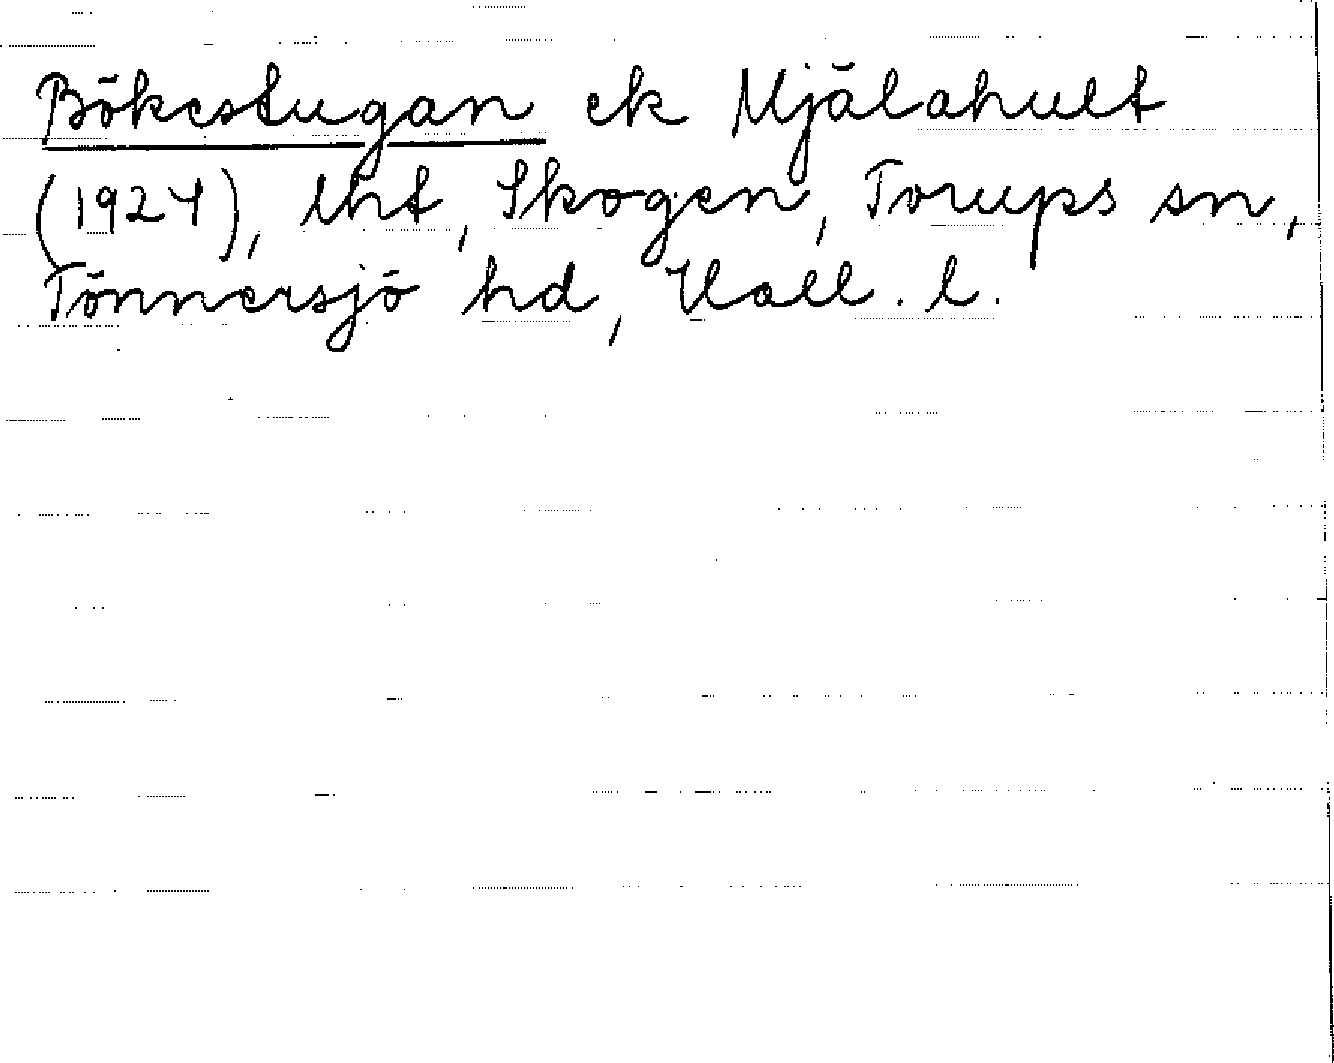 Bökestugan ek Mjälahult
(1924), lht, Skogen, Torups sn,
Tönnersjö hd, Hall. l.